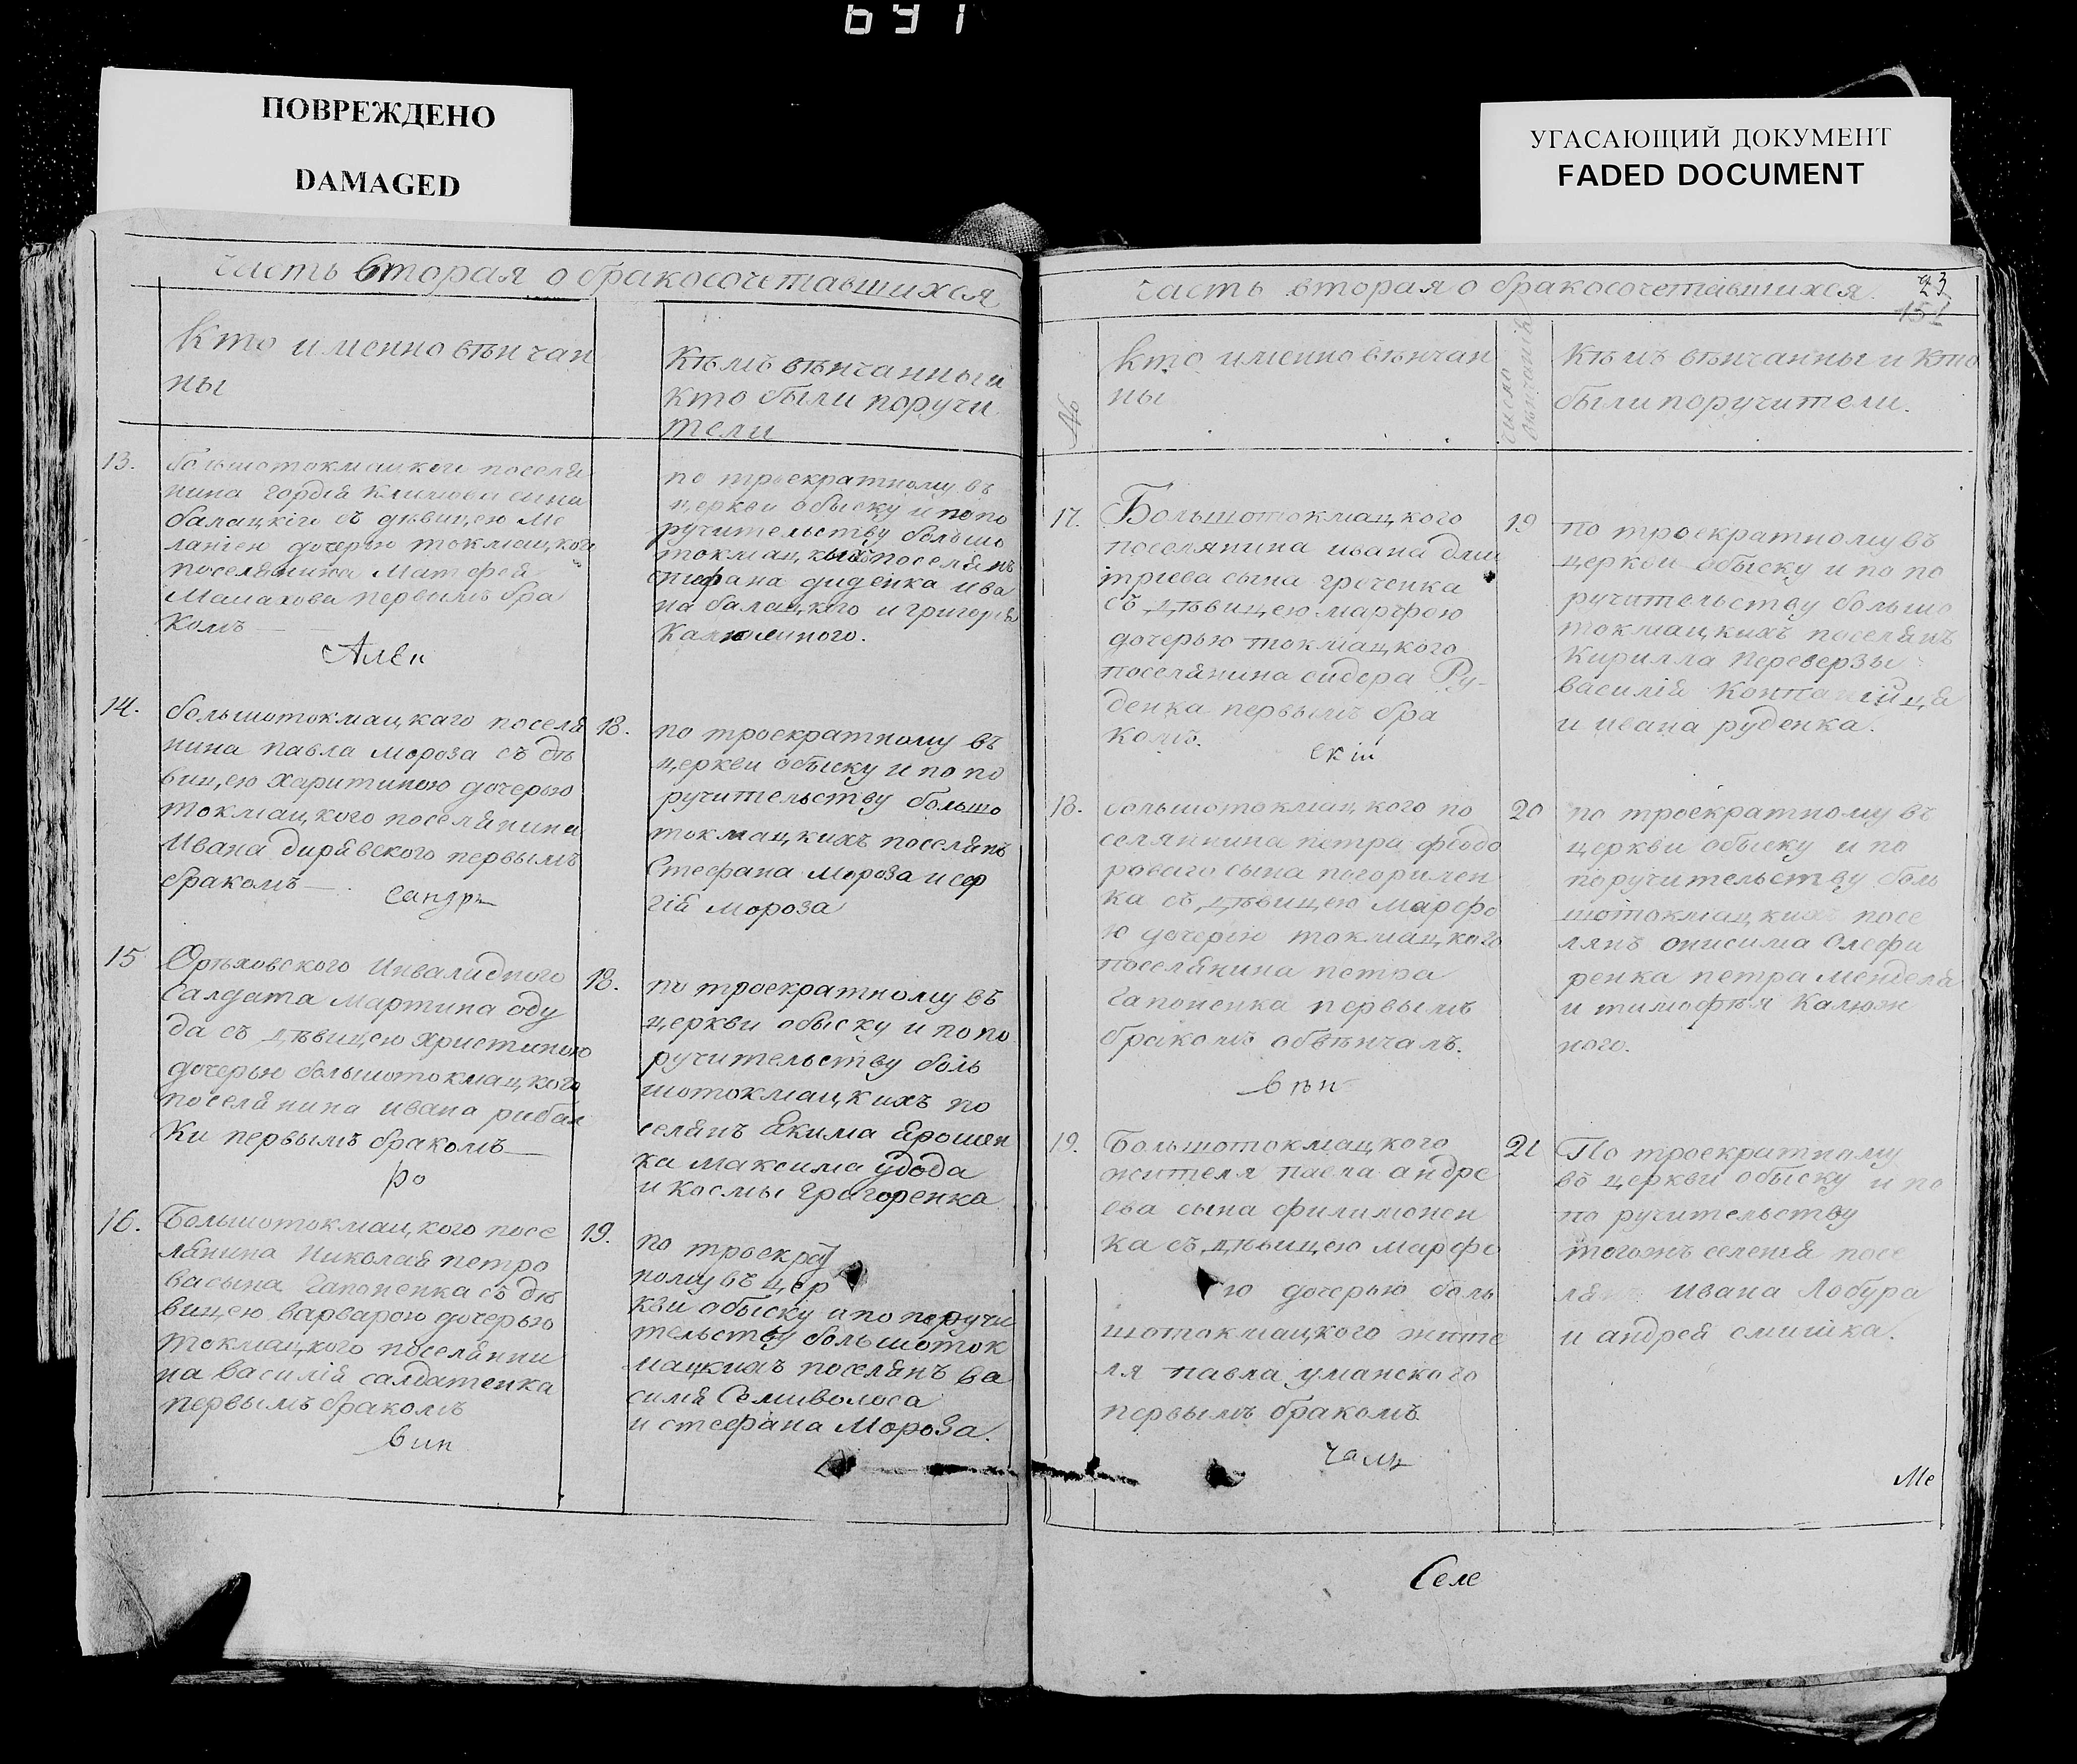 691
ПОВРЕЖДЕНО
DAMAGED
УГАСАЮЩИЙ ДОКУМЕНТ
FADED DOCUMENT
часть вторая о бракосочетавшихся
Кто именно вѣнчан
ны
Кѣмъ вѣнчанны и
кто были поручи
тели
13.
большотокмацкого поселя
нина Гордѣя Климова сына
балацкого съ дѣвицею Ме
ланіею дочерью токмацкого
поселянина Матфея
Малахова первымъ бра
комъ
по троекратному въ
церкви обыску и по по
ручительству большо
токмацкихъ поселянъ
стефана диденка ива
на балацкого и григорія
Калюжного.
Алек
14.
большотокмацкаго поселя
нина павла мороза съ дѣ
вицею харитиною дочерью
токмацкого поселянина
Ивана дирявского первымъ
бракомъ
18.
по троекратному въ
церкви обыску и по по
ручительству большо
токмацкихъ поселянъ
Стефана Мороза и сер
гія мороза
сандръ
15
Орѣховского Инвалидного
Салдата Мартина оду
да съ дѣвицею христиною
дочерью большотокмацкого
поселянина ивана рибал
Ки первымъ бракомъ
18.
по троекратному въ
церкви обыску и по по
ручительству боль
шотокмацкихъ по
селянъ Якима Ярошен
ка максима удода
и космы григоренка
ро
16.
Большотокмацкого посе
лянина Николая петро
ва сына Гапоненка съ дѣ
вицею варварою дочерью
токмацкого поселяни
на василія салдатенка
первымъ бракомъ
19.
по троекрат
ному въ цер
кви обыску и по поручи
тельству большоток
мацкихъ поселянъ ва
силя Семиволоса
и стефана Мороза.
вин
часть вторая о бракосочетавшихся
23
151
№
кто именно вѣнчан
ны
число
вѣнчанія
Кѣмъ вѣнчанны и кто
были поручители.
17.
Большотокмацкого
поселянина ивана дми
тріева сына гречепка
съ дѣвицею марѳою
дочерью токмацкого
поселянина сидора Ру-
денка первымъ бра
комъ.
19
по троекратному въ
церкви обыску и по по
ручительству большо
токмацкихъ поселянъ
Кирилла Переверзы
василія
и ивана руденка.
скій
18.
большотокмацкого по
селянина петра феодо
рового сына погорилен
ка съ дѣвицею марфо
ю дочерью токмацкого
поселянина петра
Гапоненка первымъ
бракомъ обвѣнчалъ.
20
по троекратному въ
церкви обыску и по
поручительству боль
шотокмацкихъ посе
лянъ онисима Олефи
ренка петра менделя
и тимофѣя Калюж
ного.
вѣн
19.
Большотокмацкого
жителя павла андре
ева сына филимонен
ка съ дѣвицею марфо
ю дочерью боль
шотокмацкого жите
ля павла уманского
первымъ бракомъ
21
По троекратному
въ церкви обыску и по
по ручительству
тогожъ селенія посе
лянъ Ивана Лобура
и андрея смишка.
чалъ
Ме
Селе